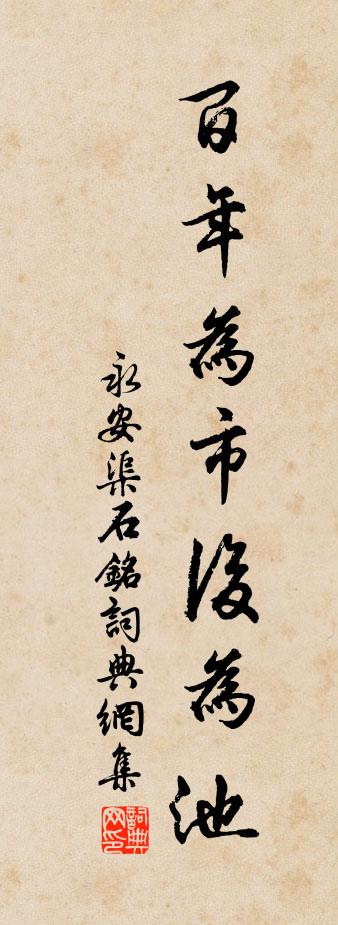 百年為市後為池
永安渠石銘詞典網集
詞典网印